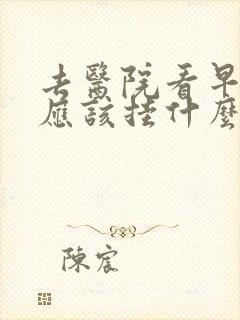 去醫院看早
應該挂什麼
陳宸